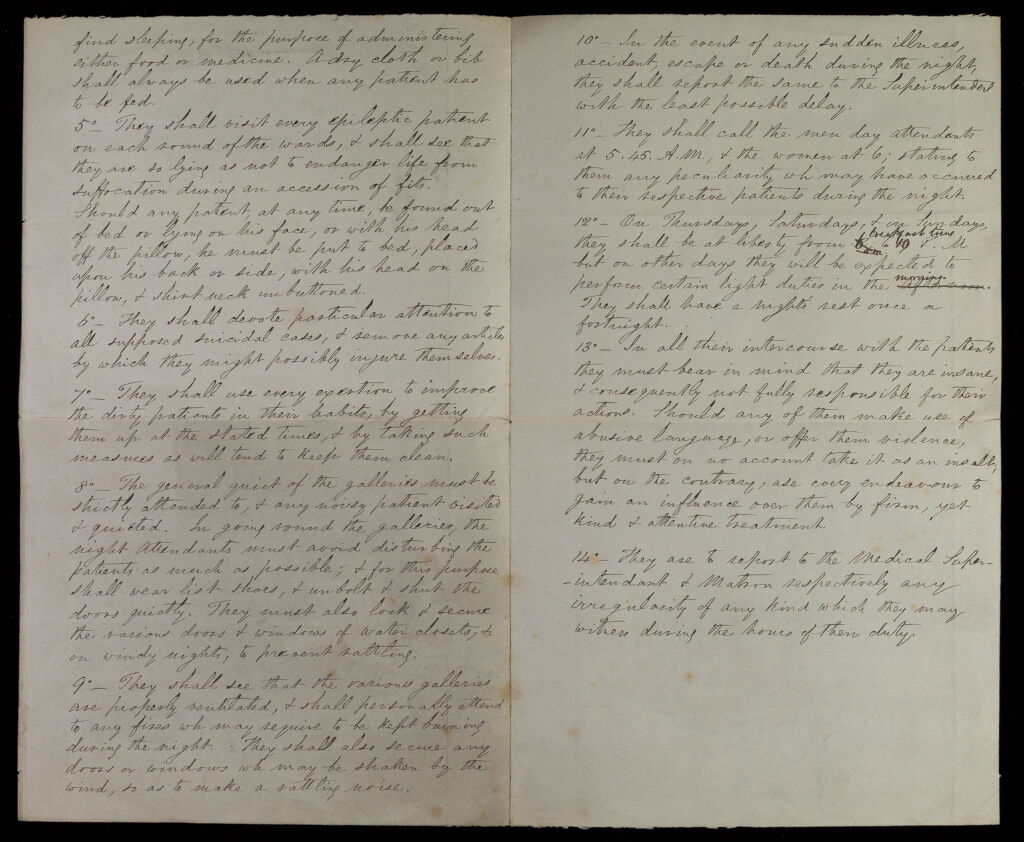 find sleeping, for the purpose of administering
either food or medicine. A dry cloth or bib
shall always be used when any patient has
to be fed.
5° — They shall visit every epileptic patient
on each round of the wards, & shall see that
they are so lying as not to endanger life from
suffocation during an accession of fits.
Should any patient, at any time, be found out
of bed or lying on his face, or with his head
off the pillow, he must be put to bed, placed
upon his back or side, with his head on the
pillow, & shirt neck unbuttoned.
6° — They shall devote particular attention to
all supposed suicidal cases, & remove any articles
by which they might possibly injure themselves.
7° — They shall use every exertion to improve
the dirty patients in their habits, by getting
them up at the stated times, & by taking such
measures as will tend to keep them clean.
8° — The general quiet of the galleries must be
strictly attended to, & any noisy patient visited
& quieted. In going round the galleries, the
night Attendants must avoid disturbing the
patients as much as possible; & for this purpose
shall wear list shoes, & unbolt & shut the
doors quietly. They must also lock & secure
the various doors & windows of water closets, &
on windy nights, to prevent rattling.
9° — They shall see that the various galleries
are properly ventilated, & shall personally attend
to any fires wh may require to be kept burning
during the night. They shall also secure any
doors or windows wh may be shaken by the
wind, so as to make a rattling noise.
10° — In the event of any sudden illness,
accident, escape or death during the night,
they shall report the same to the Superintendent
with the least possible delay.
11° — They shall call the men day attendants
at 5.45. A.M., & the women at 6; stating to
them any peculiarity wh may have occurred
to their respective patients during the night.
12° — On Thursdays, Saturdays, & on Sundays,
breakfast time
they shall be at liberty from to 10 P.M
but on other days they will be expected to
morning.
perform certain light duties in the afternoon.
They shall have a nights rest once a
fortnight.
13° — In all their intercourse with the patients
they must bear in mind that they are insane,
& consequently not fully responsible for their
actions. Should any of them make use of
abusive language, or offer them violence,
they must on no account take it as an insult;
but on the contrary, use every endeavour to
gain an influence over them by firm, yet
kind & attentive treatment.
14° — They are to report to the Medical Super-
-intendant & Matron respectively any
irregularity of any kind which they may
witness during the hours of their duty.